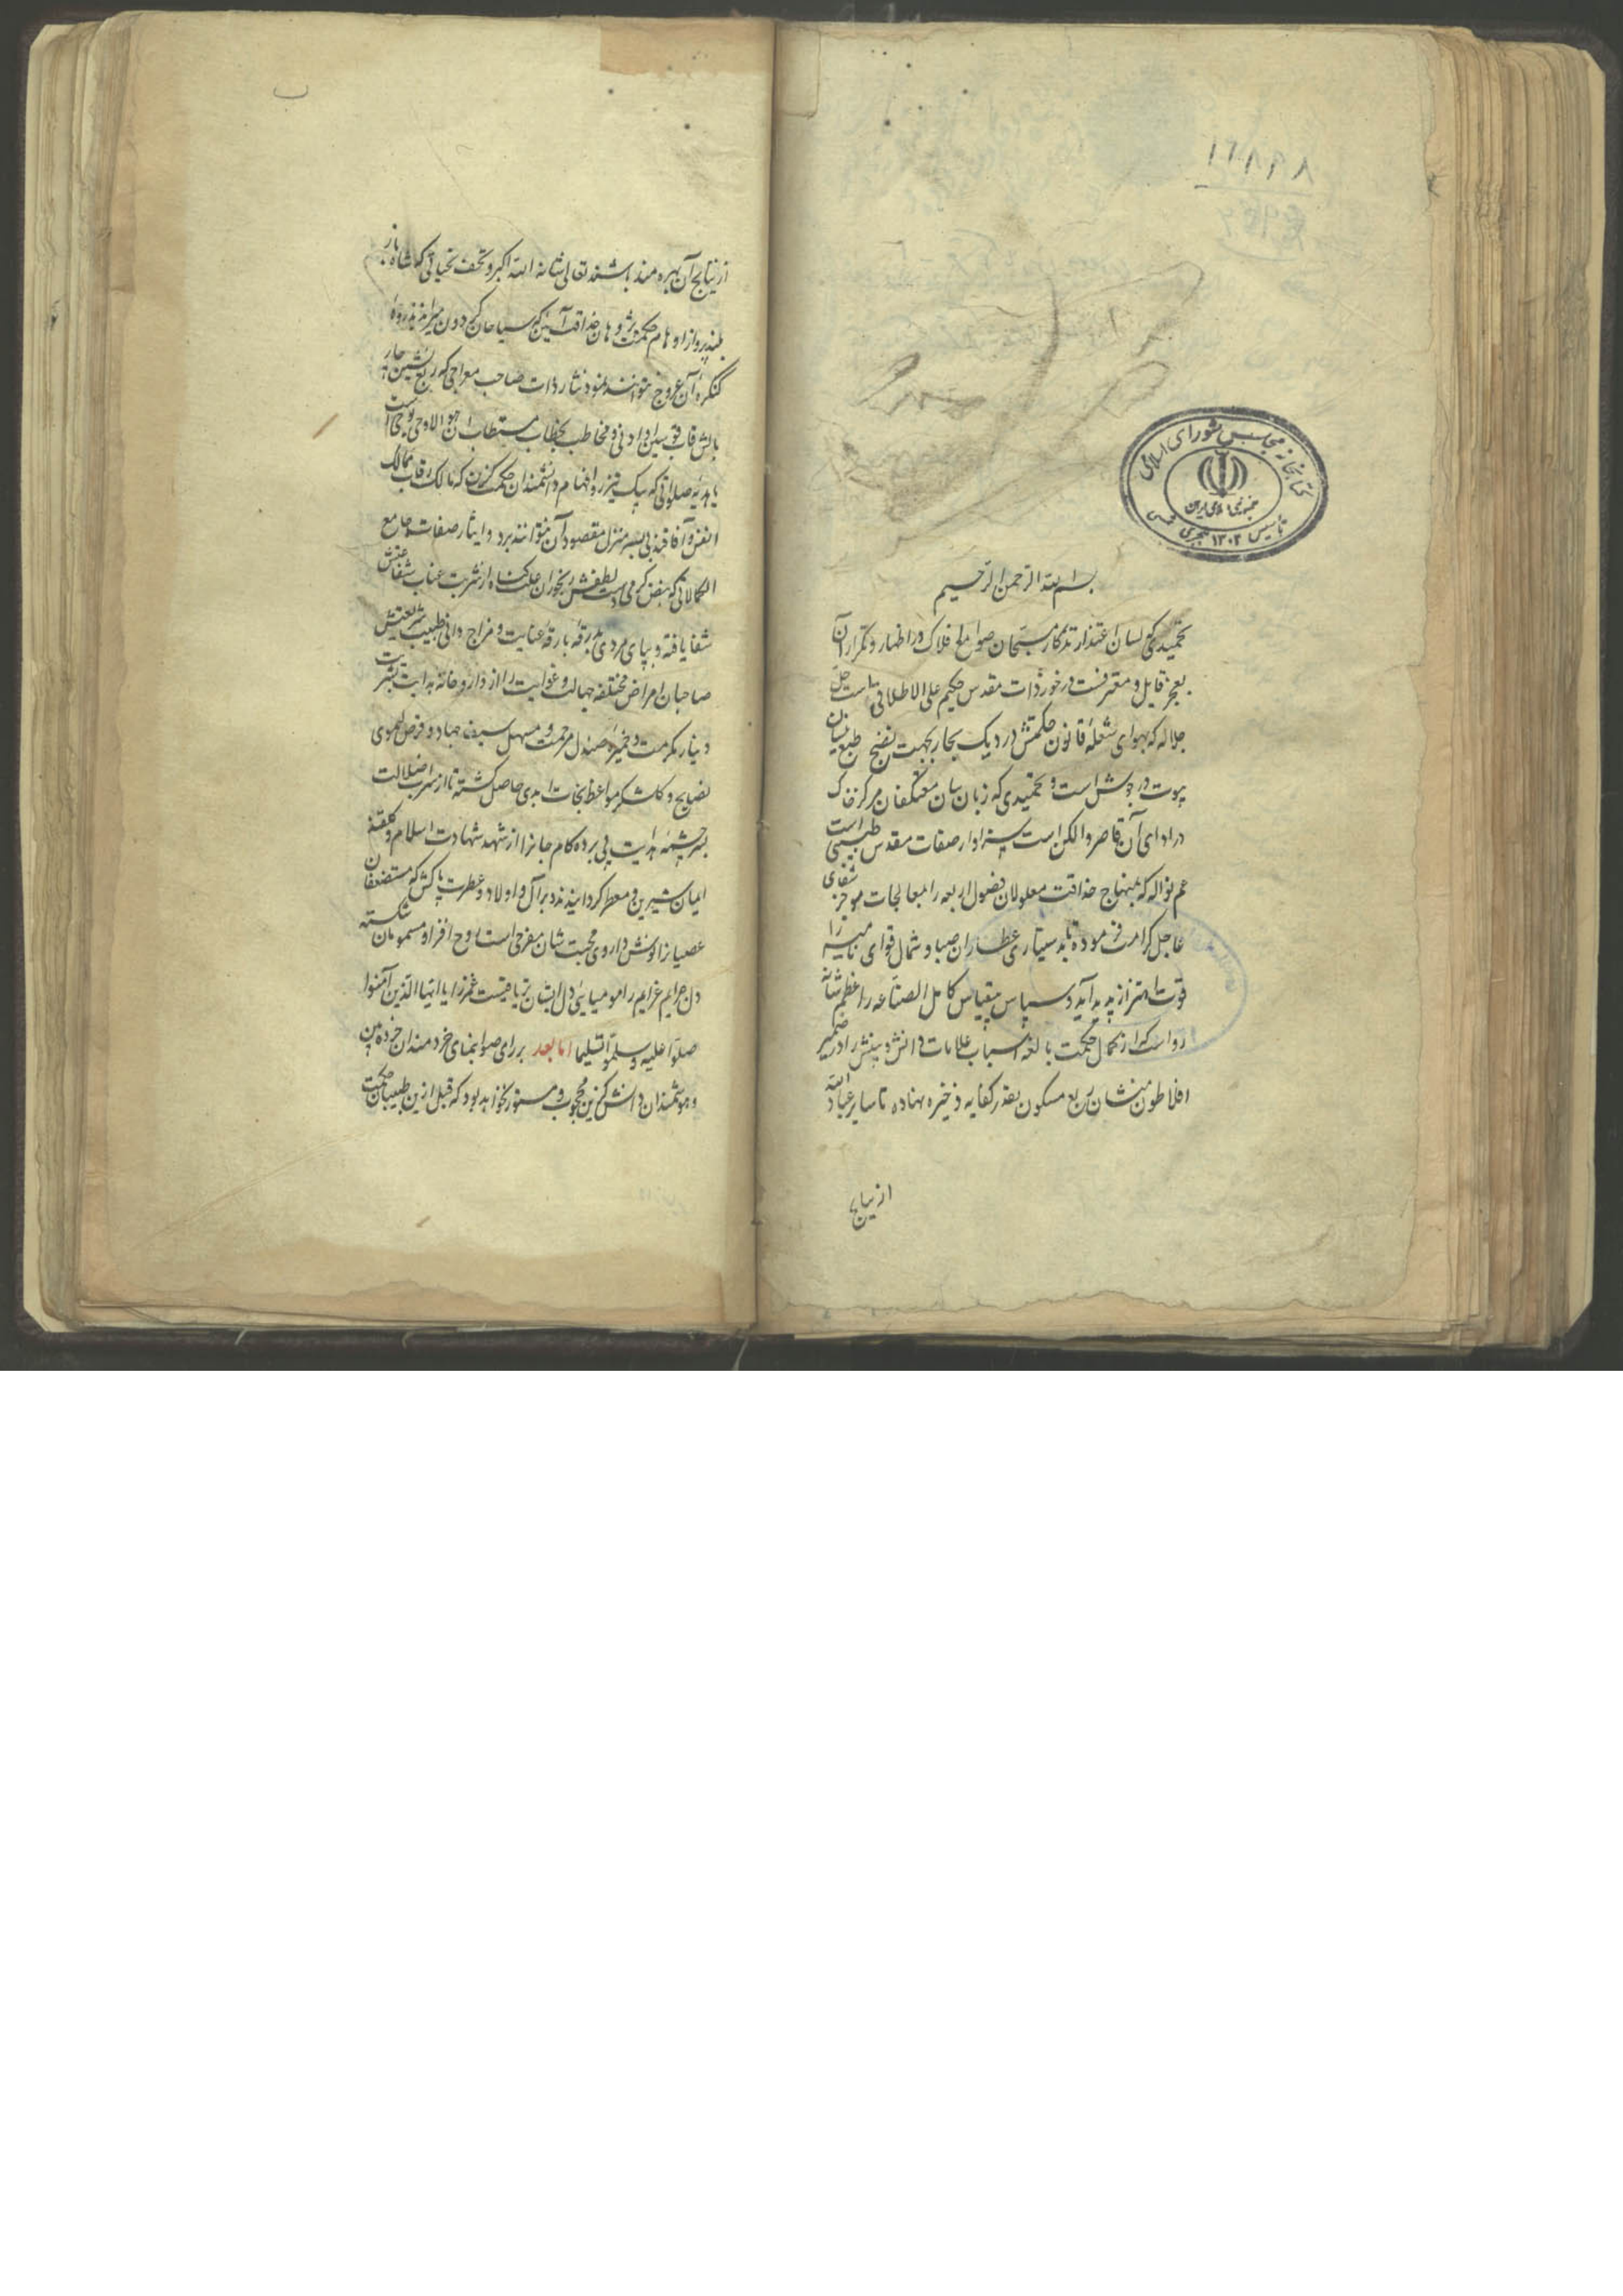 ١٦٨٩٨
کتابخانه مجلس شورای اسلامی
جمهوری اسلامی ایران
تأسیس ۱۳۰۲ هجری شمسی
بسم الله الرحمن الرحیم
تحمیدی که لسان اعتذار تذکار مسبحان صوامع افلاک در اظهار و تکرار آن
بعجز قایل و معترفست در خور ذات مقدس حکیم علی الاطلاقی است جل
جلاله که بهوای شعلهٔ قانون حکمتش در دیک بحار بجهت نضج طبع نیسان
پیوت در جوش است و تحمیدی که زبان بیان معتکفان مرکز خاک
در ادای آن قاصر و الکن است سزاوار صفات مقدس طبیبی است
عم نواله که بمنهاج حذاقت معلولان فصول اربعه را بمعالجات موجز شفای
عاجل کرامت فرموده تا بدستیاری عطاران صبا و شمال قوای نامیه را
قوت اهتزاز پدید آید و سپاس بیقیاس کامل الصناعه را عظم شانه
رواست که از کمال حکمت بالغه اسباب علامات دانش و بینش را در ضمیر
افلاطون منشان ربع مسکون بقدر کفایه ذخیره نهاده تا سایر عباد الله
از نتایج
از نتایج آن بهره مند باشند تعالی شانه الله اکبر و تحف تحیاتی که شاه باز
بلند پرواز اوهام حکمت پژوهان حذاقت آیین که سیاحان کردون
کنکرهٔ آن عروج نتوانند نمود نثار ذات صاحب معراجی که ربع نشین چار
بالش قاب قوسین او ادنی و مخاطب بخطاب مستطاب ان هو الا وحی یوحی است
یا هدیه صلواتی که پیک تیزرو افهام دانشمندان حکمت کزین که مالک رقاب ممالک
انفس و آفاقند پی بسر منزل مقصود آن نتوانند برد و ایثار صفات جامع
الکمالاتی که بفیض کرمی دست لطفش رنجوران علت کناه از شربت عناب شفاعتش
شفا یافته و بپای مردی بدرقه بارقهٔ عنایت و مزاج دانی طبیب شریعتش
صاحبان امراض مختلفه جهالت و غوایت را از داروخانه هدایت شربت
دینار مکرمت و خمیرهٔ صندل مرحمت و مسهل سیف جهاد و قرص لیموی
نصایح و کلشکر مواعظ نجات ابدی حاصل کشته تا از سراب ضلالت
بسر چشمهٔ هدایت پی برده کام جانرا از شهد شهادت اسلام و کلقند
ایمان شیرین و معطر کردانیدند و بر آل و اولاد و عطرت پاکش که مستضعفان
عصیانرا نوش داروی محبت شان مفرحی است روح افزا و مسمومان شکسته
دل جرایم عزایم را مومیایی دل ایشان تریاقیست غمزدا یا ایها الذین آمنوا
صلوا علیه و سلموا تسلیما اما بعد بر رای صوابنمای خردمندان خرده بین
و هوشمندان دانش کزین محجوب و مستور نخواهد بود که قبل ازین طبیبان حکمت